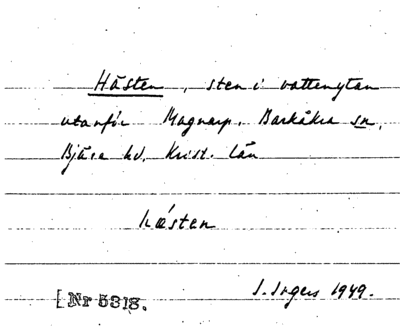 Hästen, sten i vattenytan
utanför Magnarp, Barkåkra sn,
Bjäre hd. Krist. län
hästen
I. Ingers 1949.
[Nr 5318.